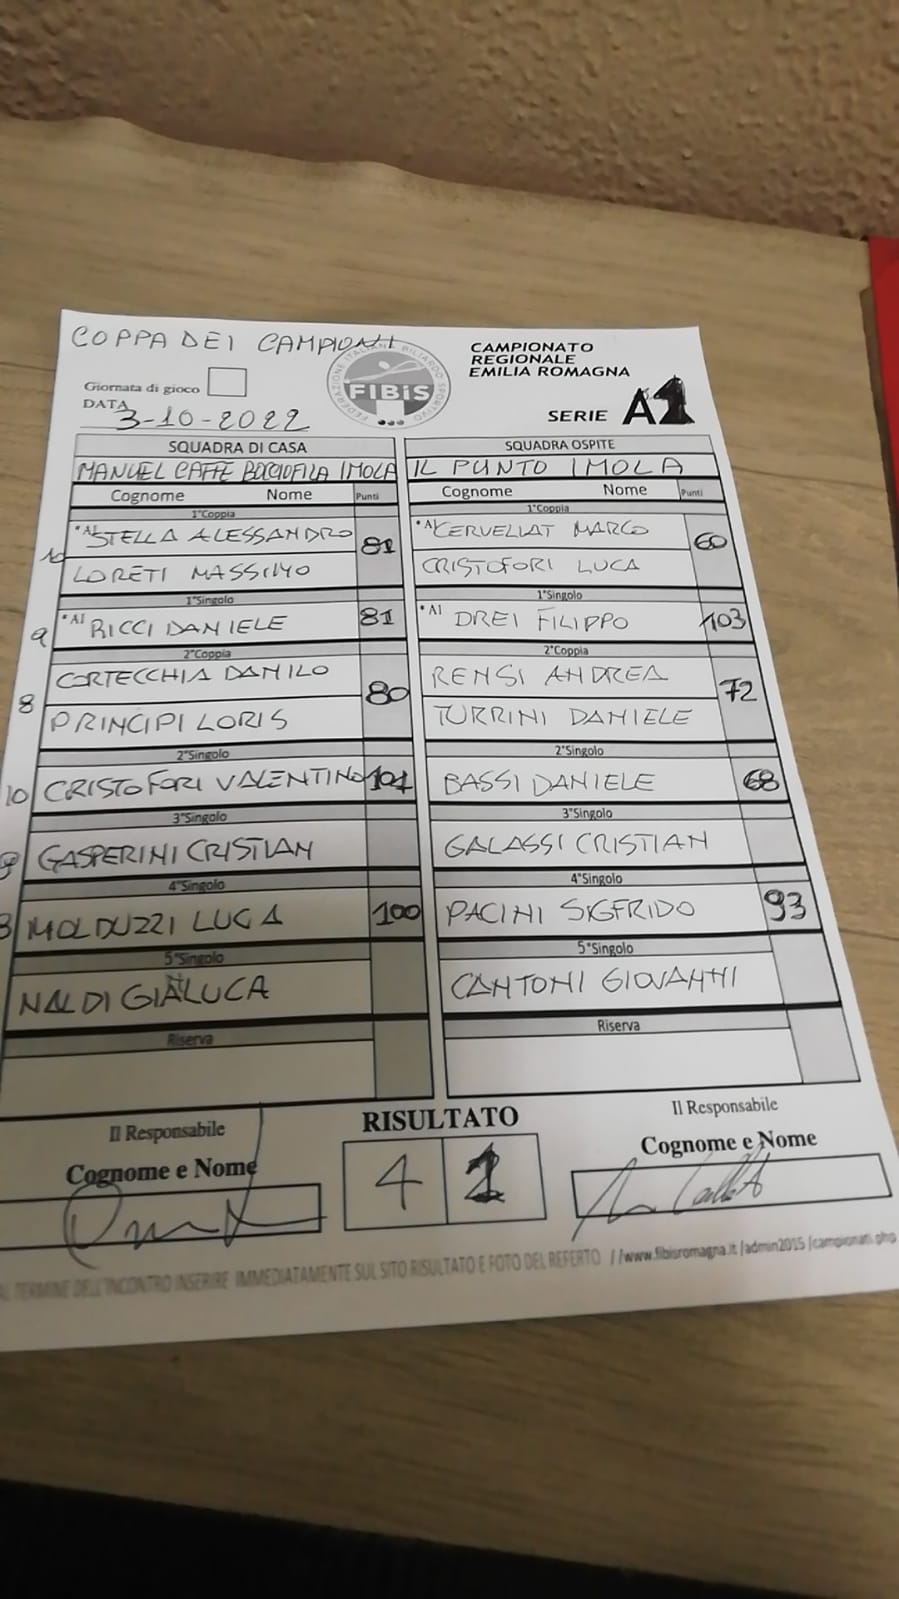 COPPA DEI CAMPIONI
FEDERAZIONE ITALIANA BILIARDO SPORTIVO
FIBiS
CAMPIONATO
REGIONALE
EMILIA ROMAGNA
SERIE A1
Giornata di gioco
DATA 3-10-2022
SQUADRA DI CASA SQUADRA OSPITE
MANUEL CAFFE BOCCIOFILA IMOLA IL PUNTO IMOLA
Cognome Nome Punti Cognome Nome Punti
1°Coppia 1°Coppia
10 *A1 STELLA ALESSANDRO 81 *A1 CERVELLAT MARCO 60
LORETI MASSIMO CRISTOFORI LUCA
1°Singolo 1°Singolo
9 *A1 RICCI DANIELE 81 *A1 DREI FILIPPO 103
2°Coppia 2°Coppia
8 CORTECCHIA DANILO 80 RENSI ANDREA 72
PRINCIPI LORIS TURRINI DANIELE
2°Singolo 2°Singolo
10 CRISTOFORI VALENTINO 101 BASSI DANIELE 68
3°Singolo 3°Singolo
9 GASPERINI CRISTIAN GALASSI CRISTIAN
4°Singolo 4°Singolo
8 MOLDUZZI LUCA 100 PACINI SIGFRIDO 93
5°Singolo 5°Singolo
NALDI GIANLUCA CANTONI GIOVANNI
Riserva Riserva
Il Responsabile RISULTATO Il Responsabile
Cognome e Nome 4 1 Cognome e Nome
AL TERMINE DELL'INCONTRO INSERIRE IMMEDIATAMENTE SUL SITO RISULTATO E FOTO DEL REFERTO //www.fibisromagna.it/admin2015/campionati.php